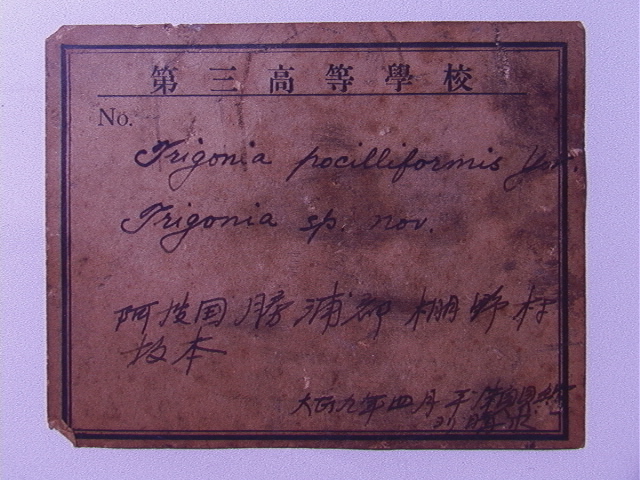 第三高等學校
No.
Trigonia pocilliformis Yok.
Trigonia sp. nov.
阿波国勝浦郡棚野村
坂本
大正九年四月